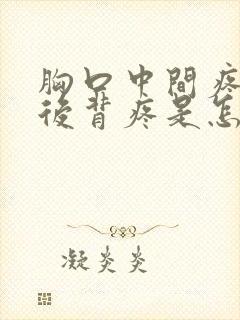 胸口中間疼
後背疼是怎
凝炎炎